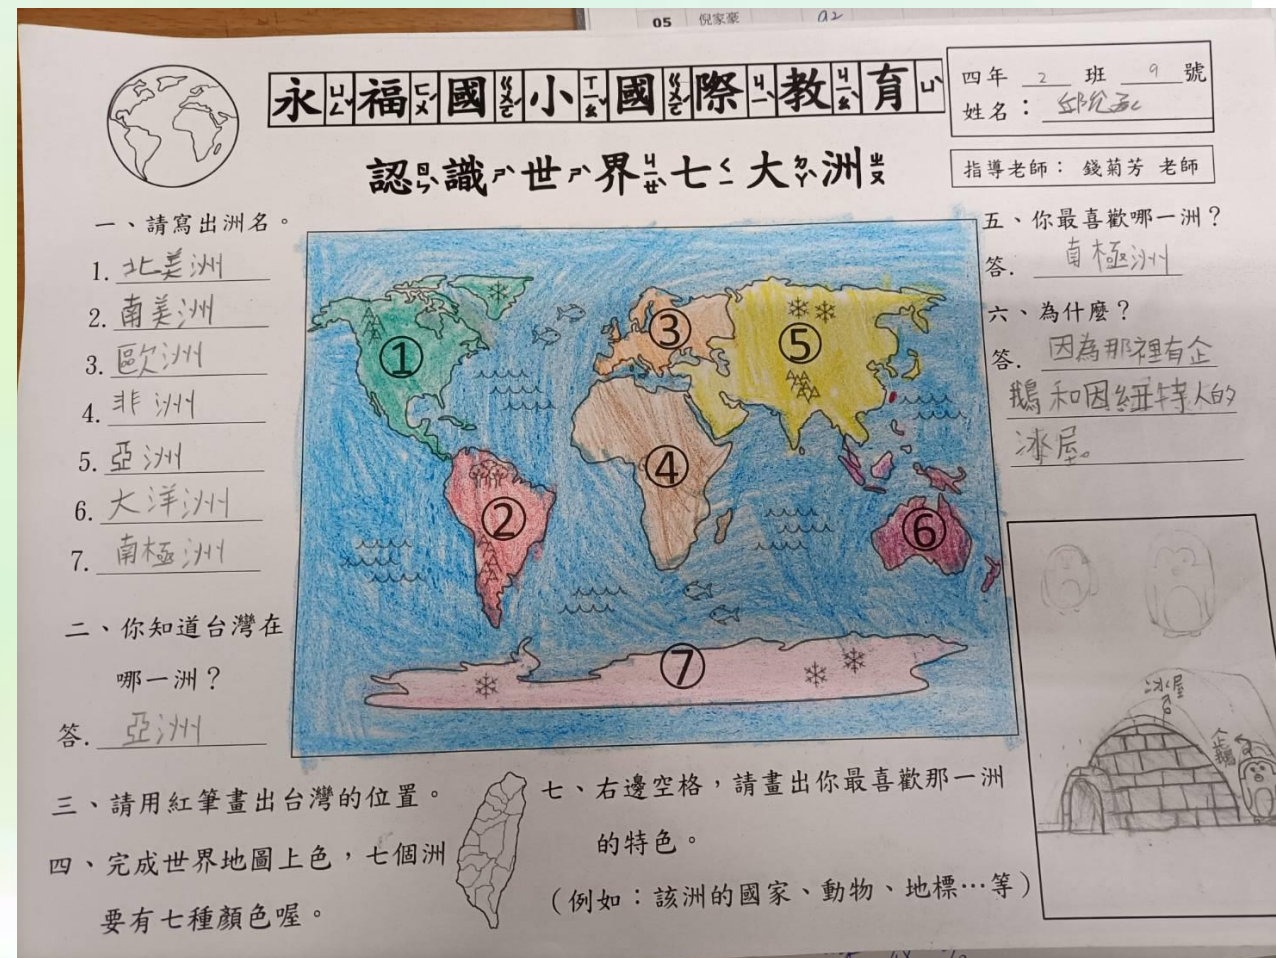 05 倪家豪 92
永ㄩㄥˇ福ㄈㄨˊ國ㄍㄨㄛˊ小ㄒㄧㄠˇ國ㄍㄨㄛˊ際ㄐㄧˋ教ㄐㄧㄠˋ育ㄩˋ
四年 2 班 9 號
姓名：邱
指導老師： 錢菊芳 老師
認ㄖㄣˋ識ㄕˋ世ㄕˋ界ㄐㄧㄝˋ七ㄑㄧ大ㄉㄚˋ洲ㄓㄡ
一、請寫出洲名。
1. 北美洲
2. 南美洲
3. 歐洲
4. 非洲
5. 亞洲
6. 大洋洲
7. 南極洲
二、你知道台灣在
哪一洲？
答. 亞洲
三、請用紅筆畫出台灣的位置。
四、完成世界地圖上色，七個洲
要有七種顏色喔。
①
②
③
④
⑤
⑥
⑦
五、你最喜歡哪一洲？
答. 南極洲
六、為什麼？
答. 因為那裡有企
鵝和因紐特人的
冰屋。
七、右邊空格，請畫出你最喜歡那一洲
的特色。
（例如：該洲的國家、動物、地標…等）
冰屋
企鵝